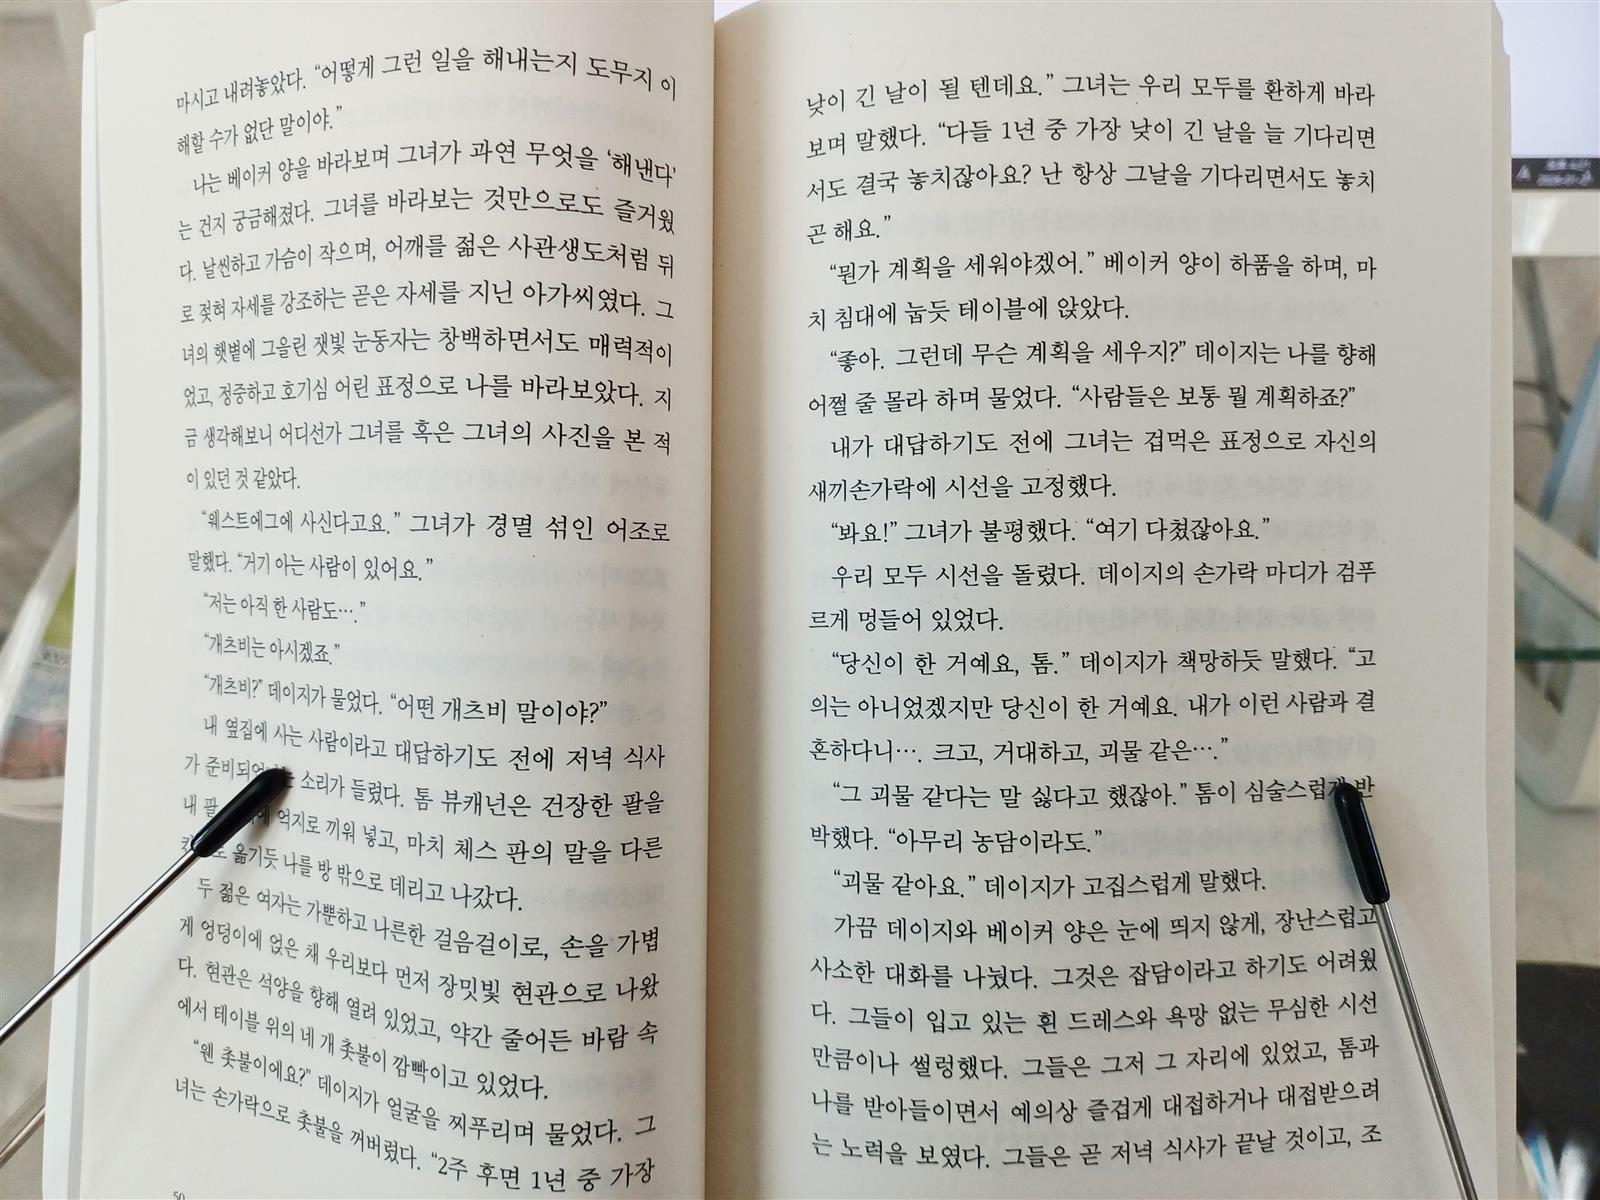 마시고 내려놓았다. “어떻게 그런 일을 해내는지 도무지 이
해할 수가 없단 말이야.”
나는 베이커 양을 바라보며 그녀가 과연 무엇을 ‘해낸다’
는 건지 궁금해졌다. 그녀를 바라보는 것만으로도 즐거웠
다. 날씬하고 가슴이 작으며, 어깨를 젊은 사관생도처럼 뒤
로 젖혀 자세를 강조하는 곧은 자세를 지닌 아가씨였다. 그
녀의 햇볕에 그을린 잿빛 눈동자는 창백하면서도 매력적이
었고, 정중하고 호기심 어린 표정으로 나를 바라보았다. 지
금 생각해보니 어디선가 그녀를 혹은 그녀의 사진을 본 적
이 있던 것 같았다.
“웨스트에그에 사신다고요.” 그녀가 경멸 섞인 어조로
말했다. “거기 아는 사람이 있어요.”
“저는 아직 한 사람도….”
“개츠비는 아시겠죠.”
“개츠비?” 데이지가 물었다. “어떤 개츠비 말이야?”
내 옆집에 사는 사람이라고 대답하기도 전에 저녁 식사
가 소리가 들렸다. 톰 뷰캐넌은 건장한 팔을
내 팔 억지로 끼워 넣고, 마치 체스 판의 말을 다른
옮기듯 나를 방 밖으로 데리고 나갔다.
두 젊은 여자는 가뿐하고 나른한 걸음걸이로, 손을 가볍
게 엉덩이에 얹은 채 우리보다 먼저 장밋빛 현관으로 나왔
다. 현관은 석양을 향해 열려 있었고, 약간 줄어든 바람 속
에서 테이블 위의 네 개 촛불이 깜빡이고 있었다.
“웬 촛불이에요?” 데이지가 얼굴을 찌푸리며 물었다. 그
녀는 손가락으로 촛불을 꺼버렸다. “2주 후면 1년 중 가장
50
낮이 긴 날이 될 텐데요.” 그녀는 우리 모두를 환하게 바라
보며 말했다. “다들 1년 중 가장 낮이 긴 날을 늘 기다리면
서도 결국 놓치잖아요? 난 항상 그날을 기다리면서도 놓치
곤 해요.”
“뭔가 계획을 세워야겠어.” 베이커 양이 하품을 하며, 마
치 침대에 눕듯 테이블에 앉았다.
“좋아. 그런데 무슨 계획을 세우지?” 데이지는 나를 향해
어쩔 줄 몰라 하며 물었다. “사람들은 보통 뭘 계획하죠?”
내가 대답하기도 전에 그녀는 겁먹은 표정으로 자신의
새끼손가락에 시선을 고정했다.
“봐요!” 그녀가 불평했다. “여기 다쳤잖아요.”
우리 모두 시선을 돌렸다. 데이지의 손가락 마디가 검푸
르게 멍들어 있었다.
“당신이 한 거예요, 톰.” 데이지가 책망하듯 말했다. “고
의는 아니었겠지만 당신이 한 거예요. 내가 이런 사람과 결
혼하다니…. 크고, 거대하고, 괴물 같은….”
“그 괴물 같다는 말 싫다고 했잖아.” 톰이 심술스럽게 반
박했다. “아무리 농담이라도.”
“괴물 같아요.” 데이지가 고집스럽게 말했다.
가끔 데이지와 베이커 양은 눈에 띄지 않게, 장난스럽고
사소한 대화를 나눴다. 그것은 잡담이라고 하기도 어려웠
다. 그들이 입고 있는 흰 드레스와 욕망 없는 무심한 시선
만큼이나 썰렁했다. 그들은 그저 그 자리에 있었고, 톰과
나를 받아들이면서 예의상 즐겁게 대접하거나 대접받으려
는 노력을 보였다. 그들은 곧 저녁 식사가 끝날 것이고, 조